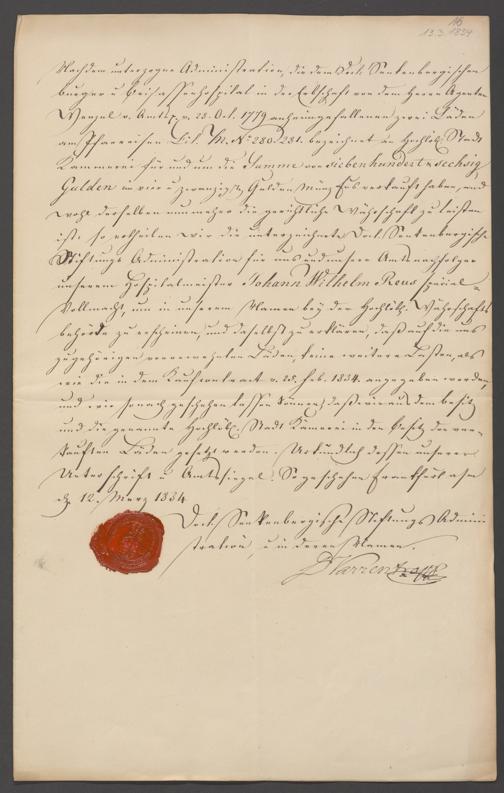 16
13.3.1834
Nachdem unterzogne Administration, die dem Doct. Senkenbergischen
burger u Beisassenhospital in der Erbschaft von dem Herrn Agenten
Wenzel v. Amts v. 23. Oct. 1779 anheimgefallenen zwei Läden
am Pfarreisen Lit. M. No 280. 281. bezeichnet an Hochlöbl. Stadt
Kämmerei für und um die Summe von siebenhundert u sechzig
Gulden im vier u zwanzig Gulden Münzfus verkauft haben, und
wohl derselben nunmehr die gerichtliche Währschaft zu leisten
ist. so ertheilen wir die unterzeichnete Doct. Senkenbergische
Stiftungs Administration für uns und unsere Amtsnachfolger
unserem Hospitalmeister Johann Wilhelm Reus special-
Vollmacht, um in unserem Namen bey der Hochlöbl. Währschafts
behörde zu erscheinen, und daselbst zu erklären, daß auf die uns
zugehörigen vorerwehnten Läden, keine weitere Lasten, als
wie die in dem Kaufcontract v. 25. Feb. 1834. angegeben worden,
und wir sonach geschehen lassen können, daß wir aus dem besitz
und die genannte Hochlöbl. Stadt Kämerei in den Besitz der ver-
kauften Läden gesetzt werden. Urkundlich dessen unsere
Unterschrift u Amtssiegel. So geschehen Frankfurt a/m
d. 12. Merz 1834
Doct. Senkenbergische Stiftungs Admini
stration, u in deren Namen.
Varrentrapp